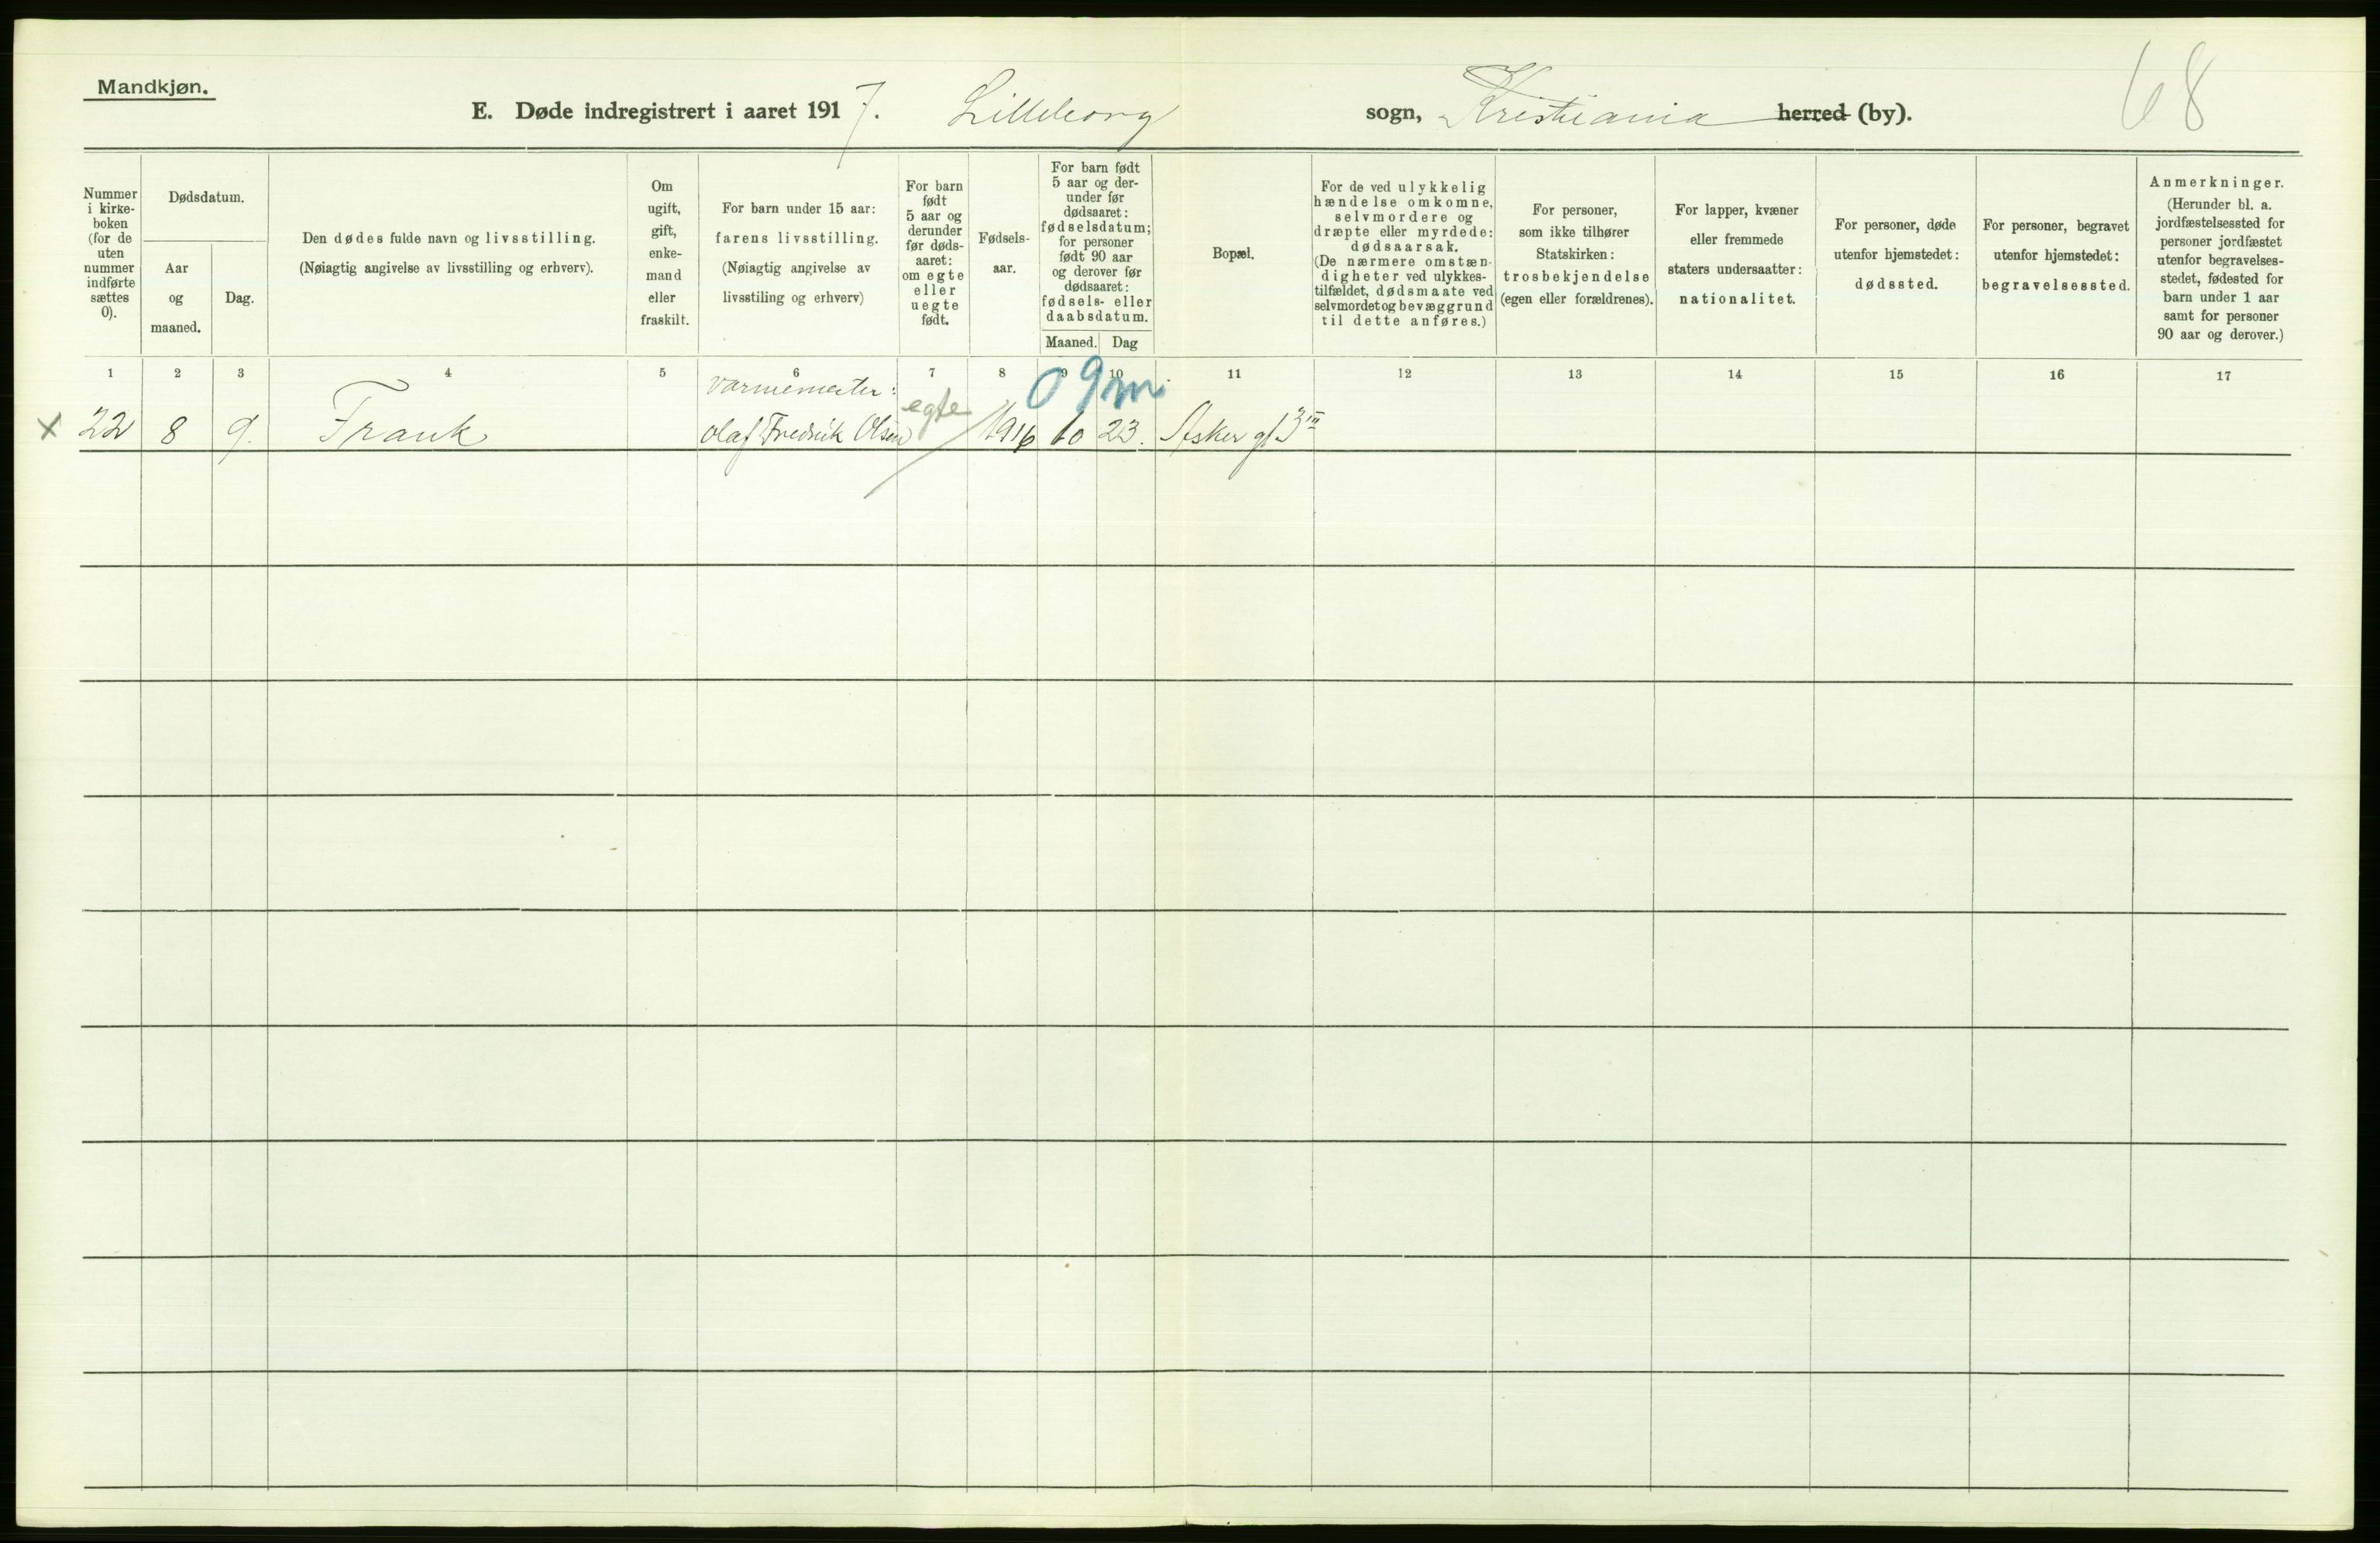 Mandkjøn.
E. Døde indregistrert i aaret 1917. Lilleborg sogn, Kristiania herred (by).
68
Nummer
i kirke-
boken
(for de
uten
nummer
indførte
sættes
0).
Dødsdatum.
Aar
og
maaned.
Dag.
Den dødes fulde navn og livsstilling.
(Nøiagtig angivelse av livsstilling og erhverv).
Om
ugift,
gift,
enke-
mand
eller
fraskilt.
For barn under 15 aar:
farens livsstilling.
(Nøiagtig angivelse av
livsstiling og erhverv)
For barn
født
5 aar og
derunder
før døds-
aaret:
om egte
eller
uegte
født.
Fødsels-
aar.
For barn født
5 aar og der-
under før
dødsaaret:
fødselsdatum;
for personer
født 90 aar
og derover før
dødsaaret:
fødsels- eller
daabsdatum.
Maaned. Dag
Bopæl.
For de ved ulykkelig
hændelse omkomne,
selvmordere og
dræpte eller myrdede:
dødsaarsak.
(De nærmere omstæn-
digheter ved ulykkes-
tilfældet, dødsmaate ved
selvmordet og bevæggrund
til dette anføres.)
For personer,
som ikke tilhører
Statskirken:
trosbekjendelse
(egen eller forældrenes).
For lapper, kvæner
eller fremmede
staters undersaatter:
nationalitet.
For personer, døde
utenfor hjemstedet:
dødssted.
For personer, begravet
utenfor hjemstedet:
begravelsessted.
Anmerkninger.
(Herunder bl. a.
jordfæstelsessted for
personer jordfæstet
utenfor begravelses-
stedet, fødested for
barn under 1 aar
samt for personer
90 aar og derover.)
1 2 3 4 5 6 7 8 9 10 11 12 13 14 15 16 17
varmemester: 0 9m.
x 22 8 9. Frank Olaf Fredrik Olsen egte 1916 10 23. Asker gt 3 III